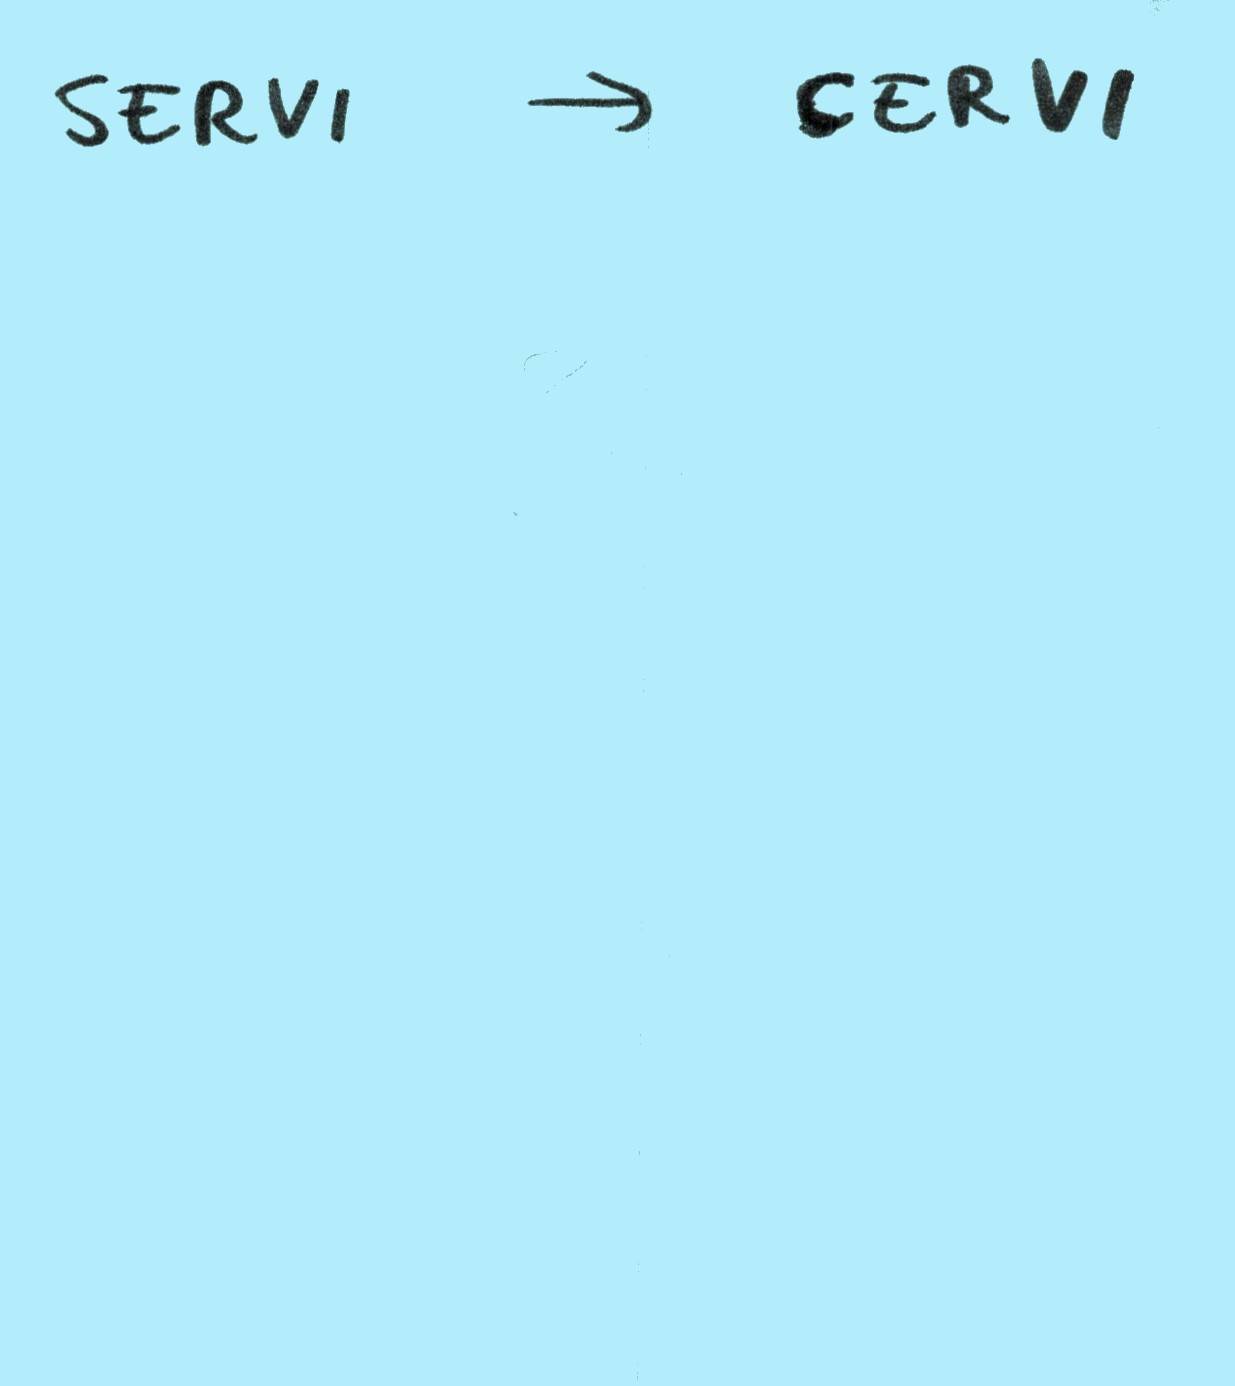 SERVI → CERVI